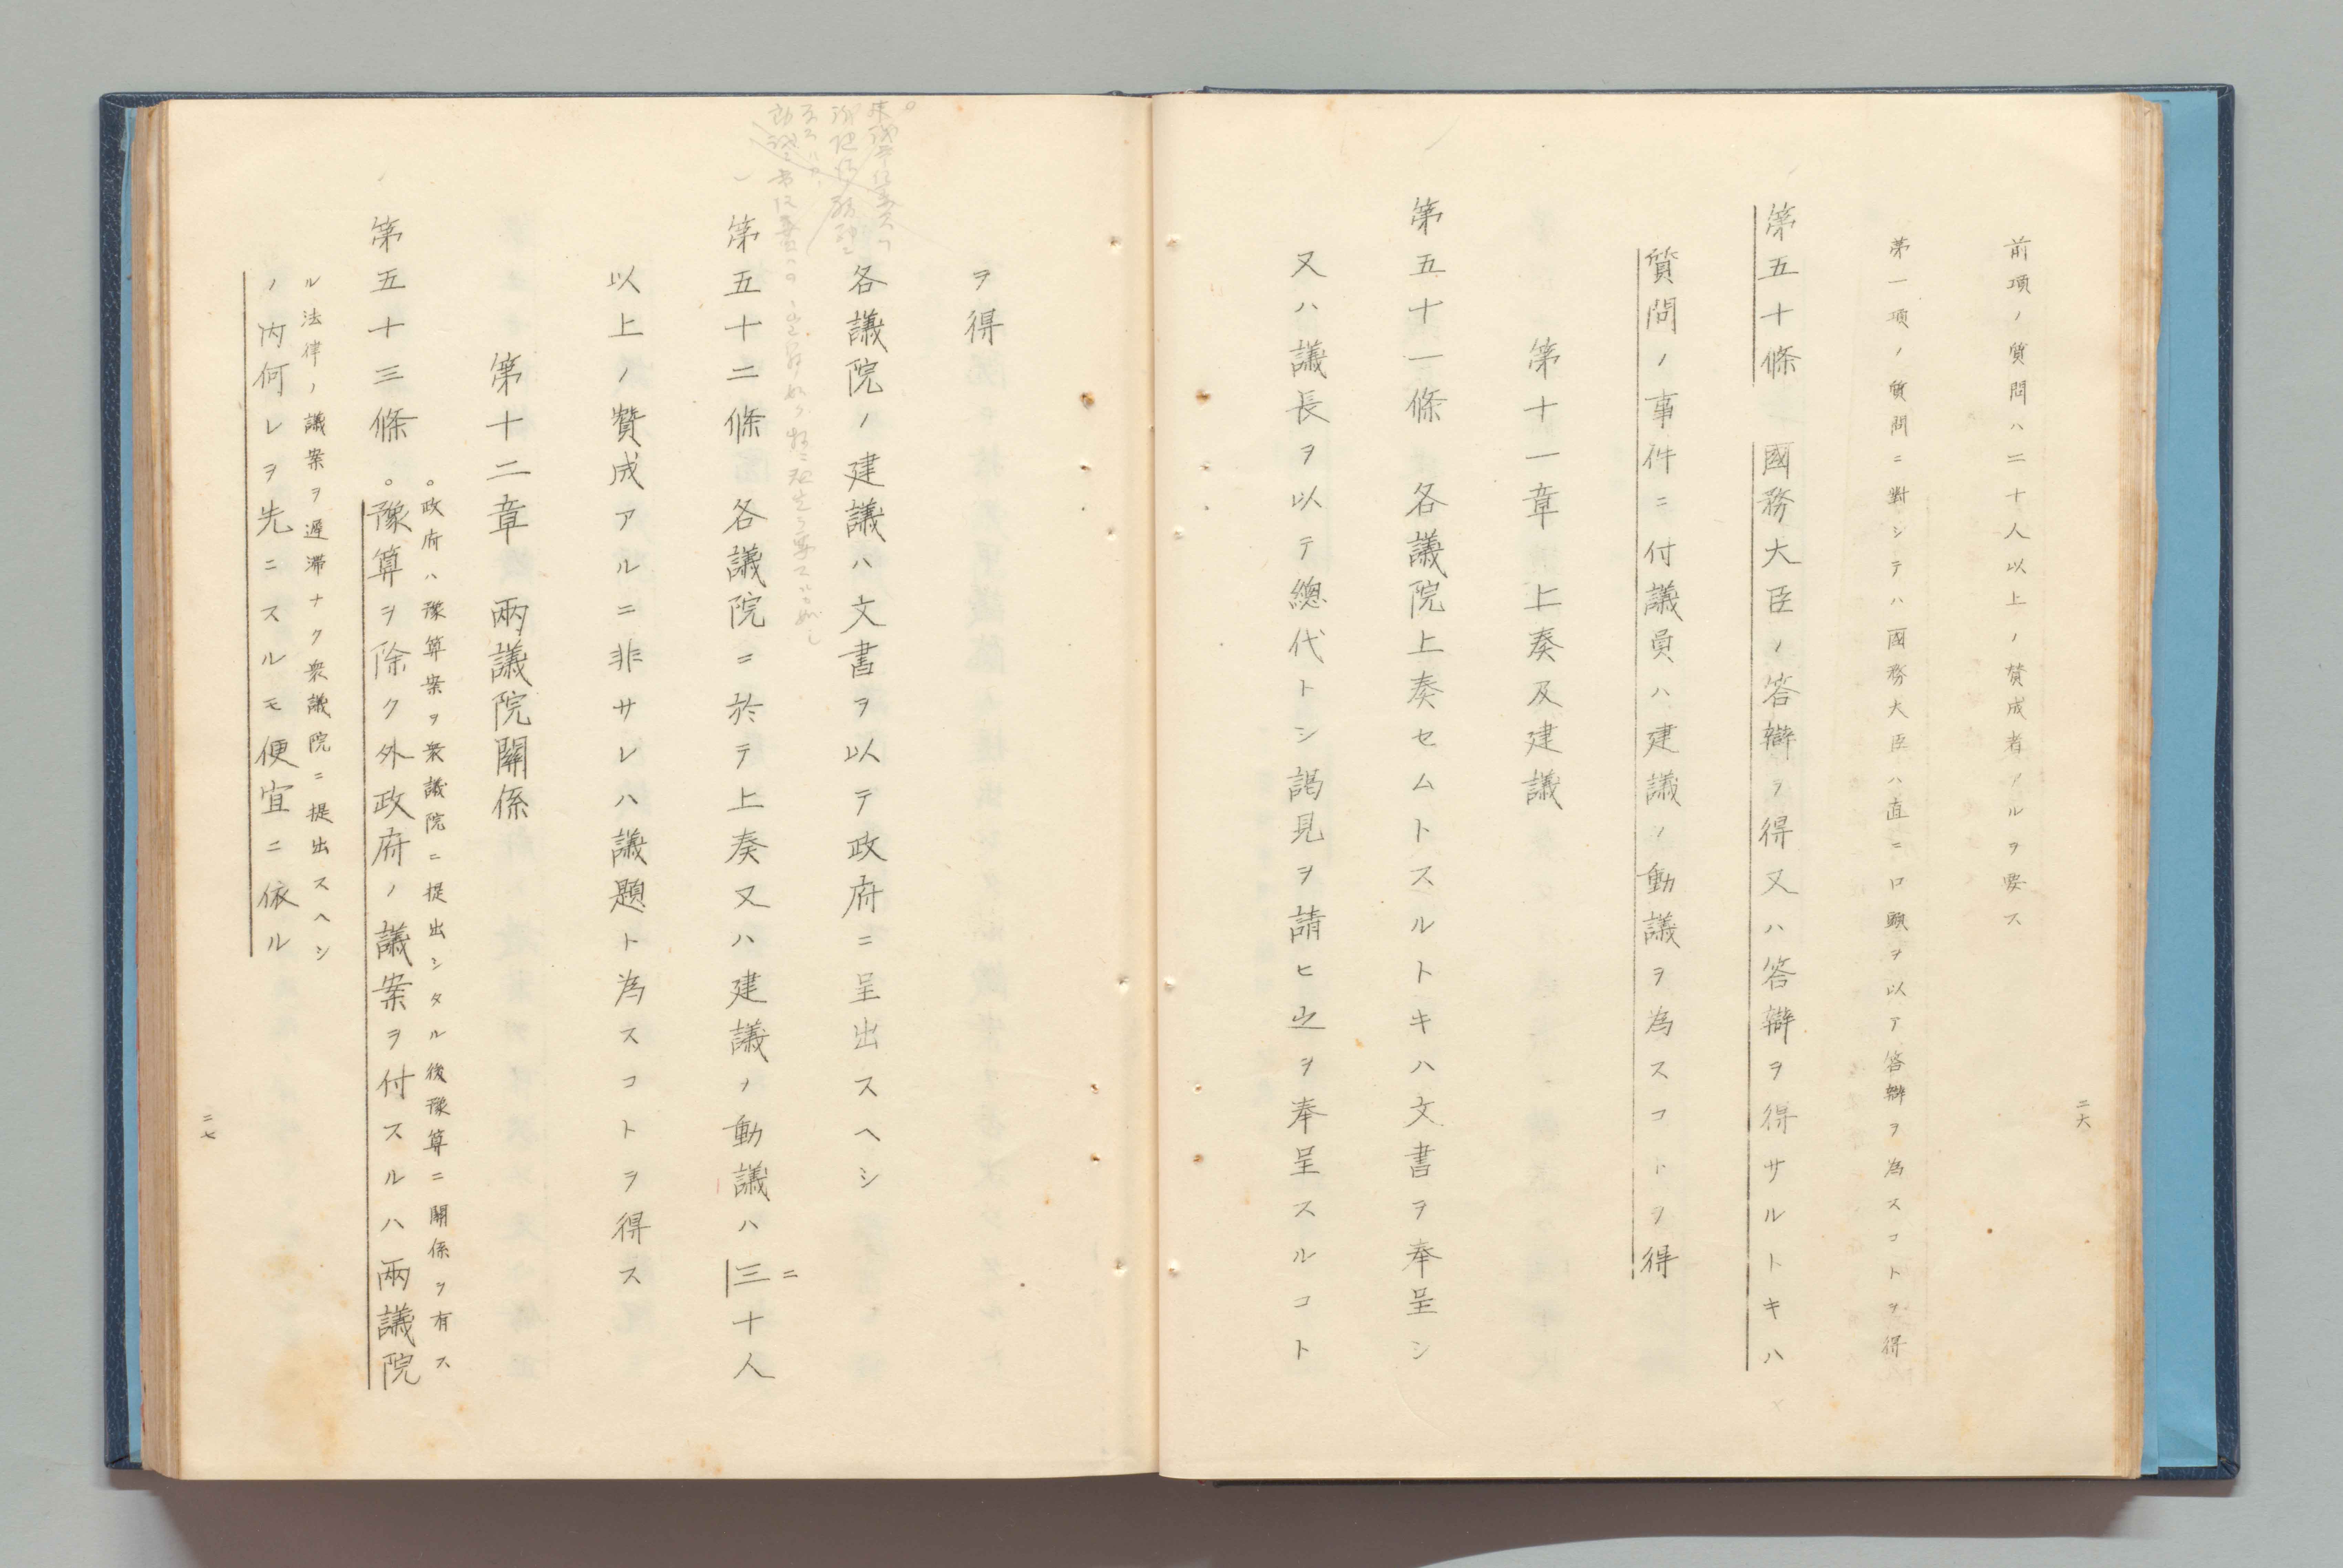 前項ノ質問ハ二十人以上ノ賛成者アルヲ要ス
第一項ノ質問ニ對シテハ國務大臣ハ直ニ口頭ヲ以テ答辯ヲ為スコトヲ得
第五十條 國務大臣ノ答辯ヲ得又ハ答辯ヲ得サルトキハ
質問ノ事件ニ付議員ハ建議ノ動議ヲ為スコトヲ得
第十一章 上奏及建議
第五十一條 各議院上奏セムトスルトキハ文書ヲ奉呈シ
又ハ議長ヲ以テ總代トシ謁見ヲ請ヒ之ヲ奉呈スルコト
二六
ヲ得
各議院ノ建議ハ文書ヲ以テ政府ニ呈出スヘシ
第五十二條 各議院ニ於テ上奏又ハ建議ノ動議ハ三十人
ニ
以上ノ賛成アルニ非サレハ議題ト為スコトヲ得ス
第十二章 兩議院關係
。政府ハ豫算案ヲ衆議院ニ提出シタル後豫算ニ關係ヲ有ス
第五十三條。豫算ヲ除ク外政府ノ議案ヲ付スルハ兩議院
ル法律ノ議案ヲ遲滯ナク衆議院ニ提出スヘシ
ノ内何レヲ先ニスルモ便宜ニ依ル
二七